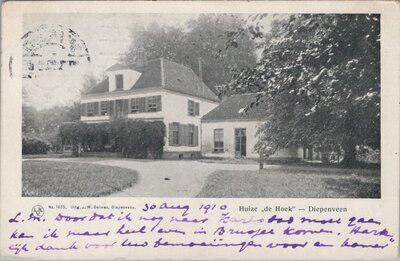 No. 1075. Uitg. J. W. Gelman, Diepenveen.
Huize „de Hoek" — Diepenveen
30 Aug 1910
L. M. Door dat ik nog naar moet gaan
kan ik maar heel even in Brussel komen. Hart.
lijk dank voor Uwe bemoeiingen voor een kamer